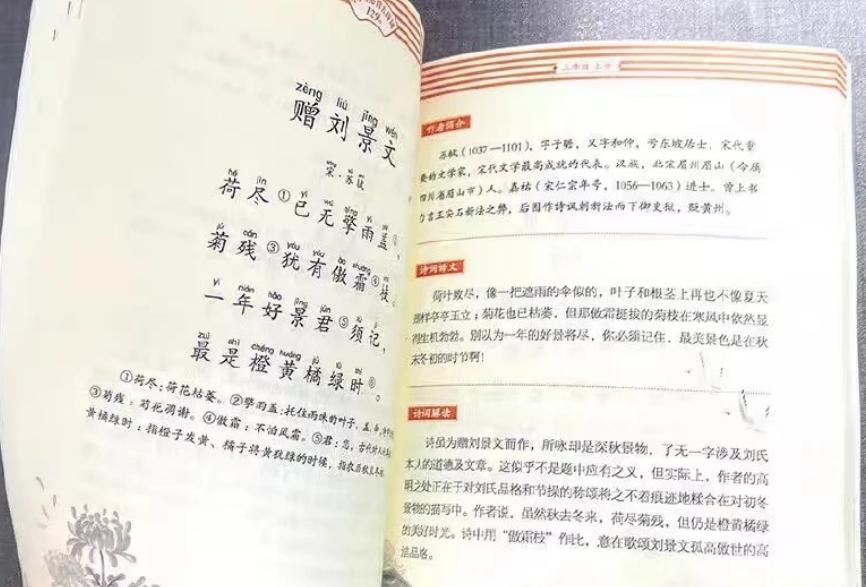 129
zèng liú jǐng wén
赠刘景文
宋·苏轼
hé jìn yǐ wú qíng yǔ gài
荷尽①已无擎雨盖②,
jú cán yóu yǒu ào shuāng zhī
菊残③犹有傲霜④枝。
yì nián hǎo jǐng jūn xū jì
一年好景君⑤须记,
zuì shì chéng huáng jú lǜ shí
最是橙黄橘绿时⑥。
①荷尽:荷花枯萎。②擎雨盖:托住雨珠的叶子。盖,
③菊残:菊花凋谢。④傲霜:不怕风霜。⑤君:您,古代对人
黄橘绿时:指橙子发黄、橘子将黄犹绿的时候,指农历秋末冬初。
三年级 上册
作者简介
苏轼(1037—1101),字子瞻,又字和仲,号东坡居士,宋代重
要的文学家,宋代文学最高成就的代表。汉族,北宋眉州眉山(今属
四川省眉山市)人。嘉祐(宋仁宗年号,1056—1063)进士。曾上书
力言王安石新法之弊,后因作诗讽刺新法而下御史狱,贬黄州。
诗词译文
荷叶败尽,像一把遮雨的伞似的,叶子和根茎上再也不像夏天
那样亭亭玉立;菊花也已枯萎,但那傲霜挺拔的菊枝在寒风中依然显
得生机勃勃。别以为一年的好景将尽,你必须记住,最美景色是在秋
末冬初的时节啊!
诗词解读
诗虽为赠刘景文而作,所咏却是深秋景物,了无一字涉及刘氏
本人的道德及文章。这似乎不是题中应有之义,但实际上,作者的高
明之处正在于对刘氏品格和节操的称颂将之不着痕迹地糅合在对初冬
景物的描写中。作者说,虽然秋去冬来,荷尽菊残,但仍是橙黄橘绿
的美好时光。诗中用“傲霜枝”作比,意在歌颂刘景文孤高傲世的高
洁品格。